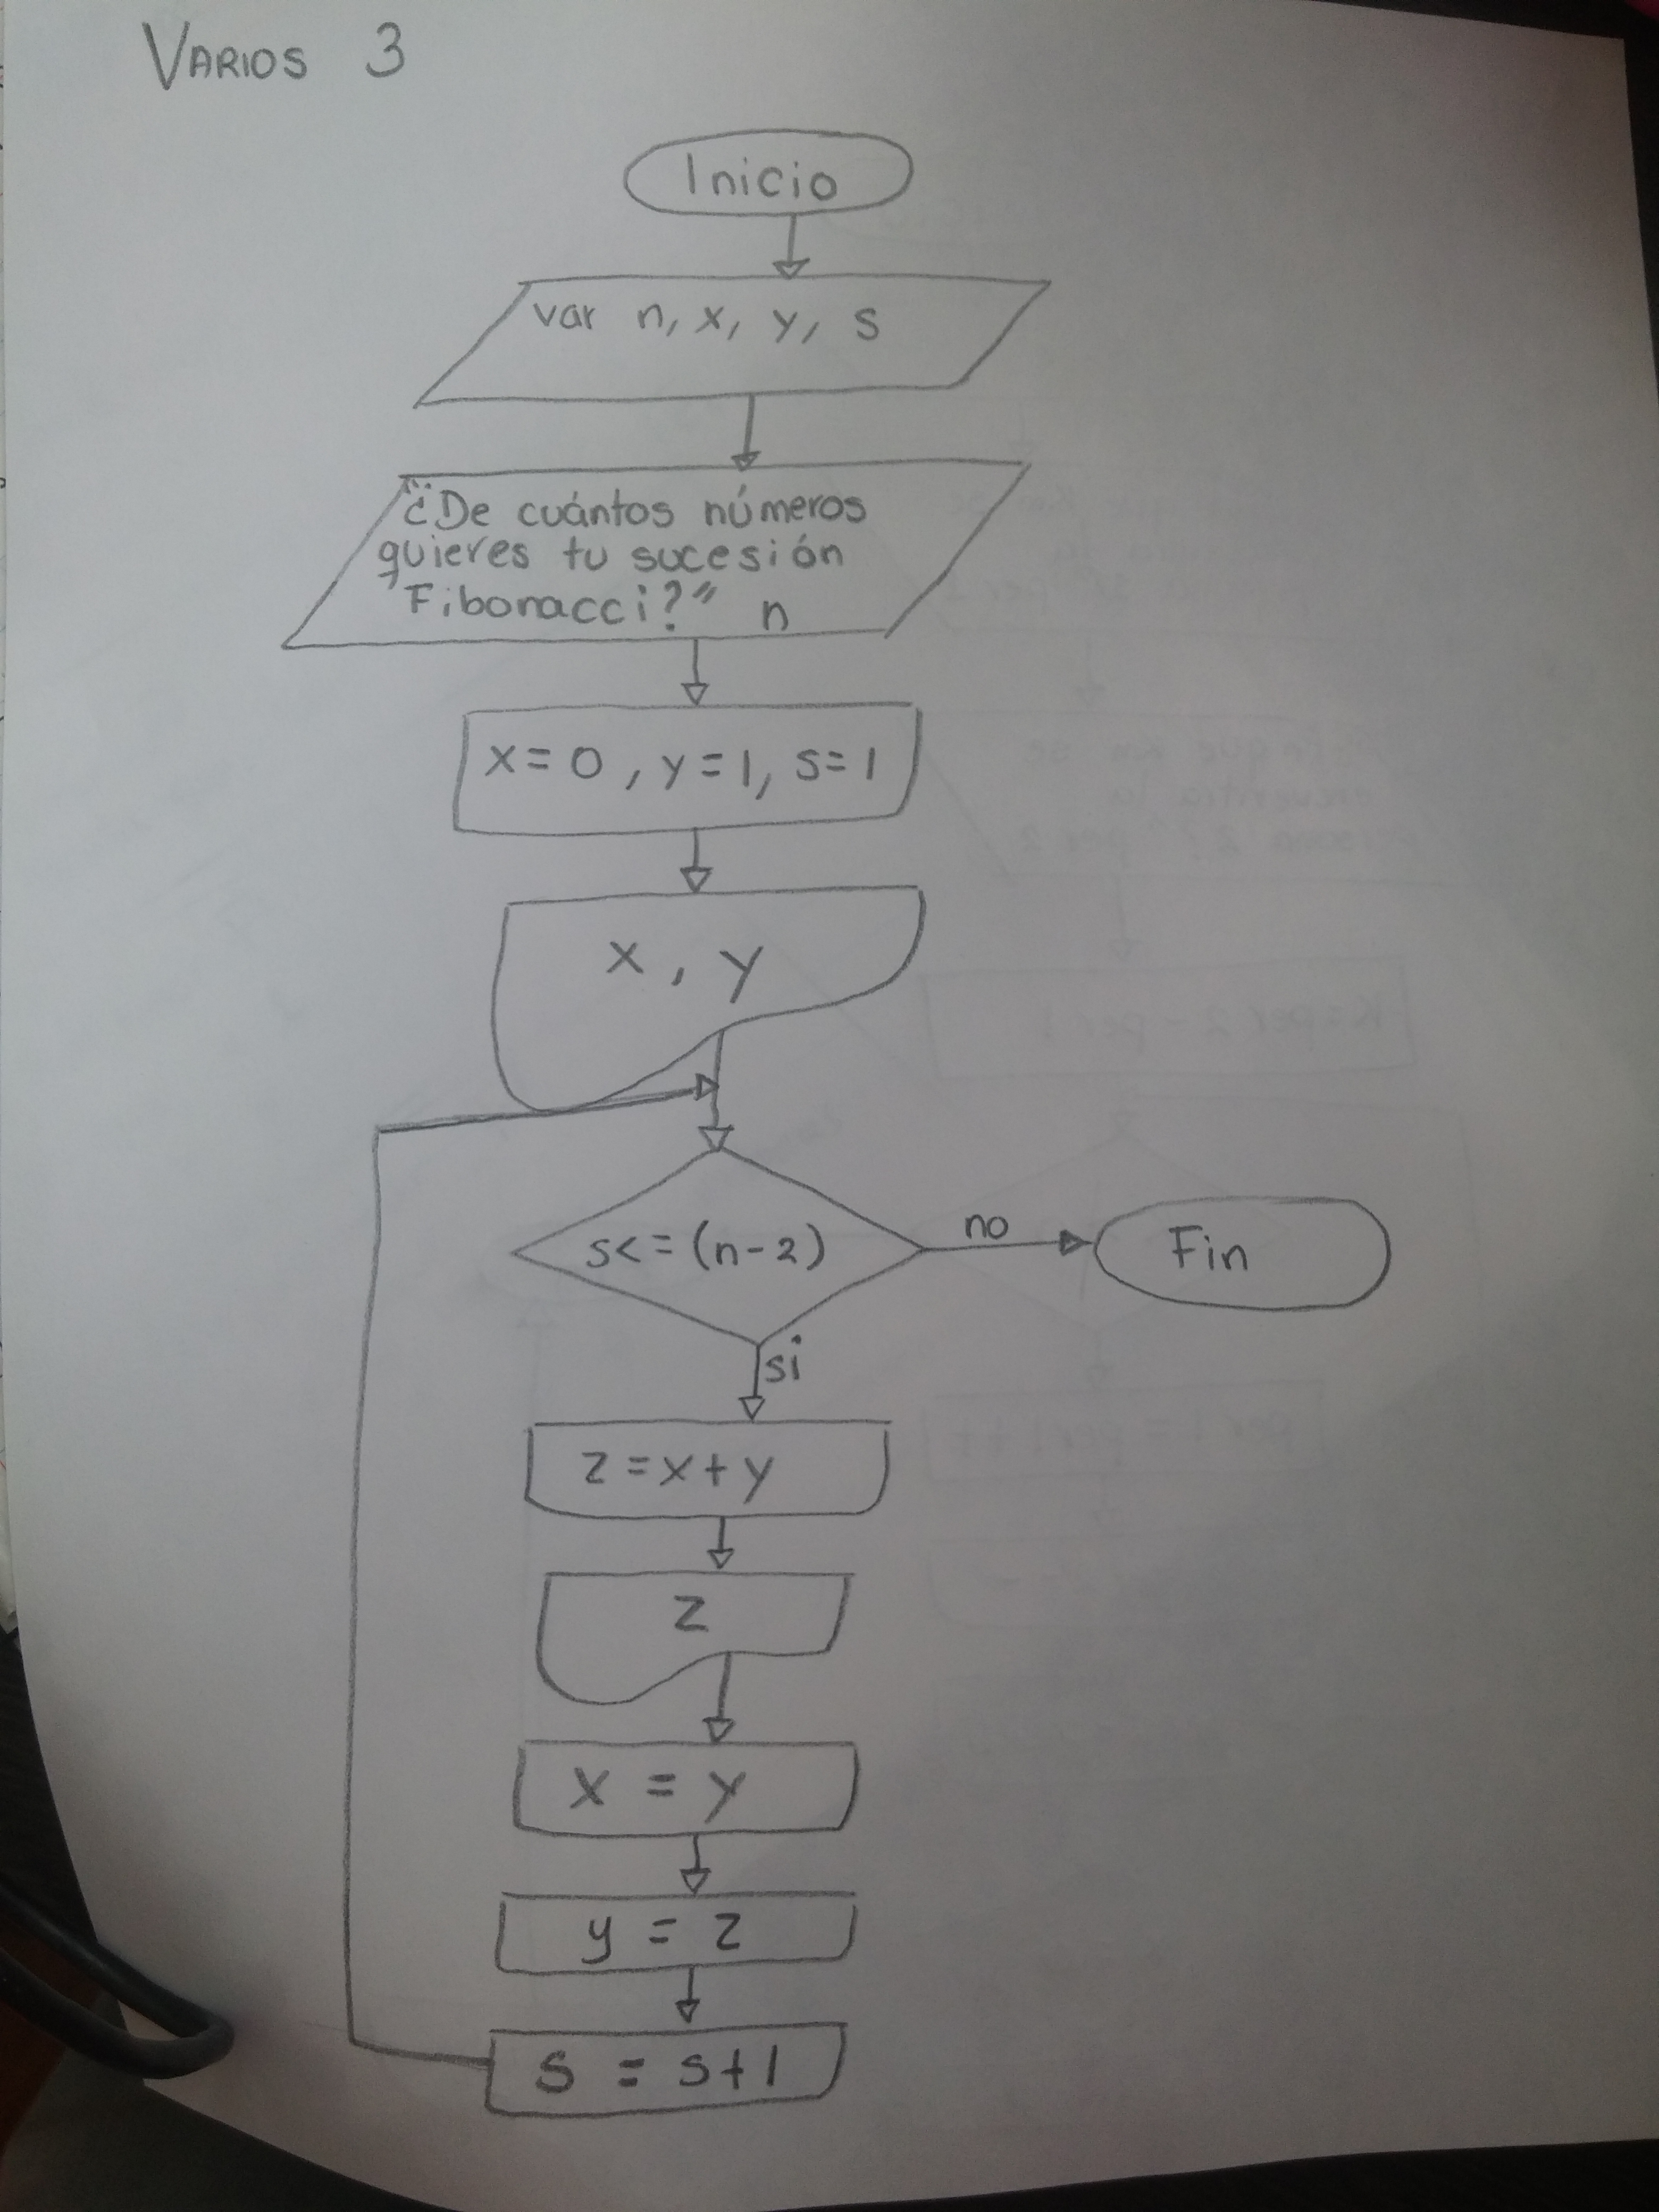 VARIOS 3
Inicio
var n, x, y, s
"¿De cuántos números
quieres tu sucesión
Fibonacci?" n
x=0, y=1, s=1
x, y
s<=(n-2)
no
Fin
si
z=x+y
z
x = y
y = z
s = s+1